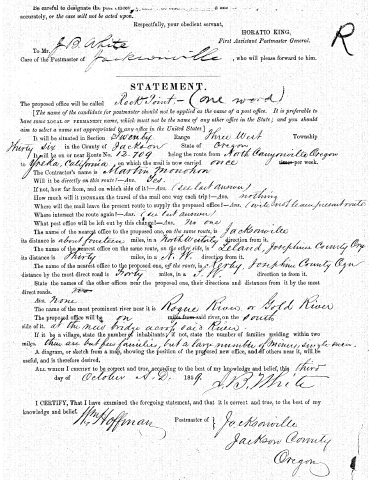 Be careful to designate the
accurately, or the case will not be acted upon.
Respectfully, your obedient servant,
HORATIO KING,
First Assistant Postmaster General.
R
To Mr. J. B. White
Care of the Postmaster of Jacksonville, who will please forward to him.
STATEMENT.
The proposed office will be called Rock Point, – (one word)
[The name of the candidate for postmaster should not be applied as the name of a post office. It is preferable to
have some LOCAL or PERMANENT name, which must not be the name of any other office in the State; and you should
aim to select a name not appropriated to any office in the United States]
It will be situated in Section Twenty Range Three West Township
Thirty six in the County of Jackson State of Oregon
It will be on or near Route No. 12.709 being the route from North Canyonville Oregon
to Yreka, California, on which the mail is now carried once per week.
The Contractor's name is
Will it be directly on this route?—Ans. Yes.
If not, how far from, and on which side of it?—Ans. (see last answer)
How much will it increase the travel of the mail one way each trip?—Ans. nothing
Where will the mail leave the present route to supply the proposed office?—Ans. (will not leave present route
Where intersect the route again?—Ans. (see last answer)
What post office will be left out by this change?—Ans. No one
The name of the nearest office to the proposed one, on the same route, is Jacksonville
its distance is about fourteen miles, in a direction from it.
The name of the nearest office on the same route, on the other side, is Leland, Josephine County Ogn
its distance is Thirty miles, in a N. W. direction from it.
The name of the nearest office to the proposed one, off the route, is Josephine County Ogn
distance by the most direct road is Forty miles, in a direction to from it.
State the names of the other offices near the proposed one, their directions and distances from it by the most
direct roads.
Ans None
The name of the most prominent river near it is Rogue River or Gold River
The proposed office will be on miles from said river, on the south
side of it, at the new bridge across said River.
If it be a village, state the number of inhabitants; if not, state the number of families residing within two
miles, there are but few families, but a large number of Miners, single men.
A diagram, or sketch from a map, showing the position of the proposed new office, and of others near it, will be
useful, and is therefore desired.
ALL WHICH I CERTIFY to be correct and true, according to the best of my knowledge and belief, this third
day of October A.D. 1859.
J. B. White
I CERTIFY, That I have examined the foregoing statement, and that it is correct and true, to the best of my
knowledge and belief.
Wm Hoffman Postmaster of Jacksonville
Jackson County
Oregon